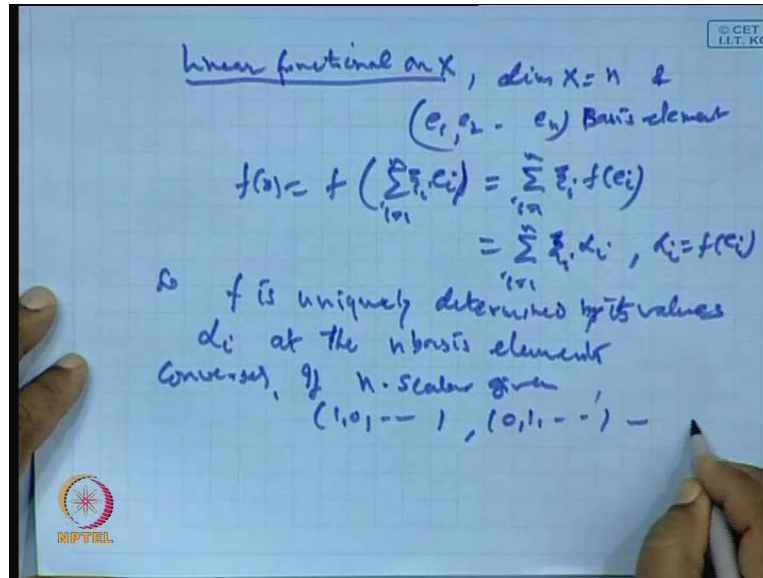 © CET
I.I.T. KG
Linear functional on X, dim X = n &
(e₁, e₂ - eₙ) Basis element
f(x) = f (∑ᵢ₌₁ⁿ ξᵢ eᵢ) = ∑ᵢ₌₁ⁿ ξᵢ f(eᵢ)
= ∑ᵢ₌₁ⁿ ξᵢ αᵢ , αᵢ = f(eᵢ)
So f is uniquely determined by its values
αᵢ at the n basis elements
Conversely, If n-scalar given,
(1, 0, -- ) , (0, 1, - - ) -
NPTEL